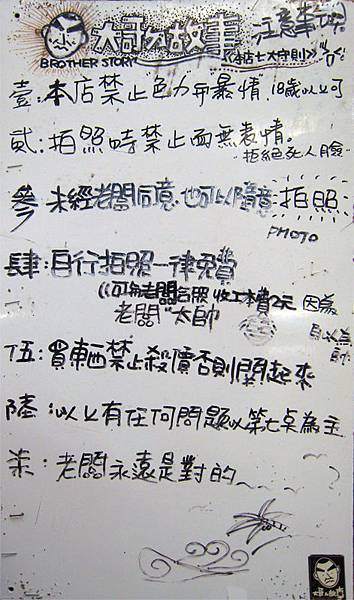 大哥的故事 注意事項
BROTHER STORY 《本店七大守則》
壹:本店禁止色力和暴情,18歲以上可
貳:拍照時禁止面無表情。
拒絕死人臉
參 未經老闆同意.也可以隨意拍照
PHOTO
肆:自行拍照一律免費
((可和老闆合照 收工本費2元 因為
老闆"太帥 自以為帥
伍:買東西禁止殺價否則鬧起來
陸:以上有任何問題以第七點為主
柒:老闆永遠是對的~~~~?
大哥的故事